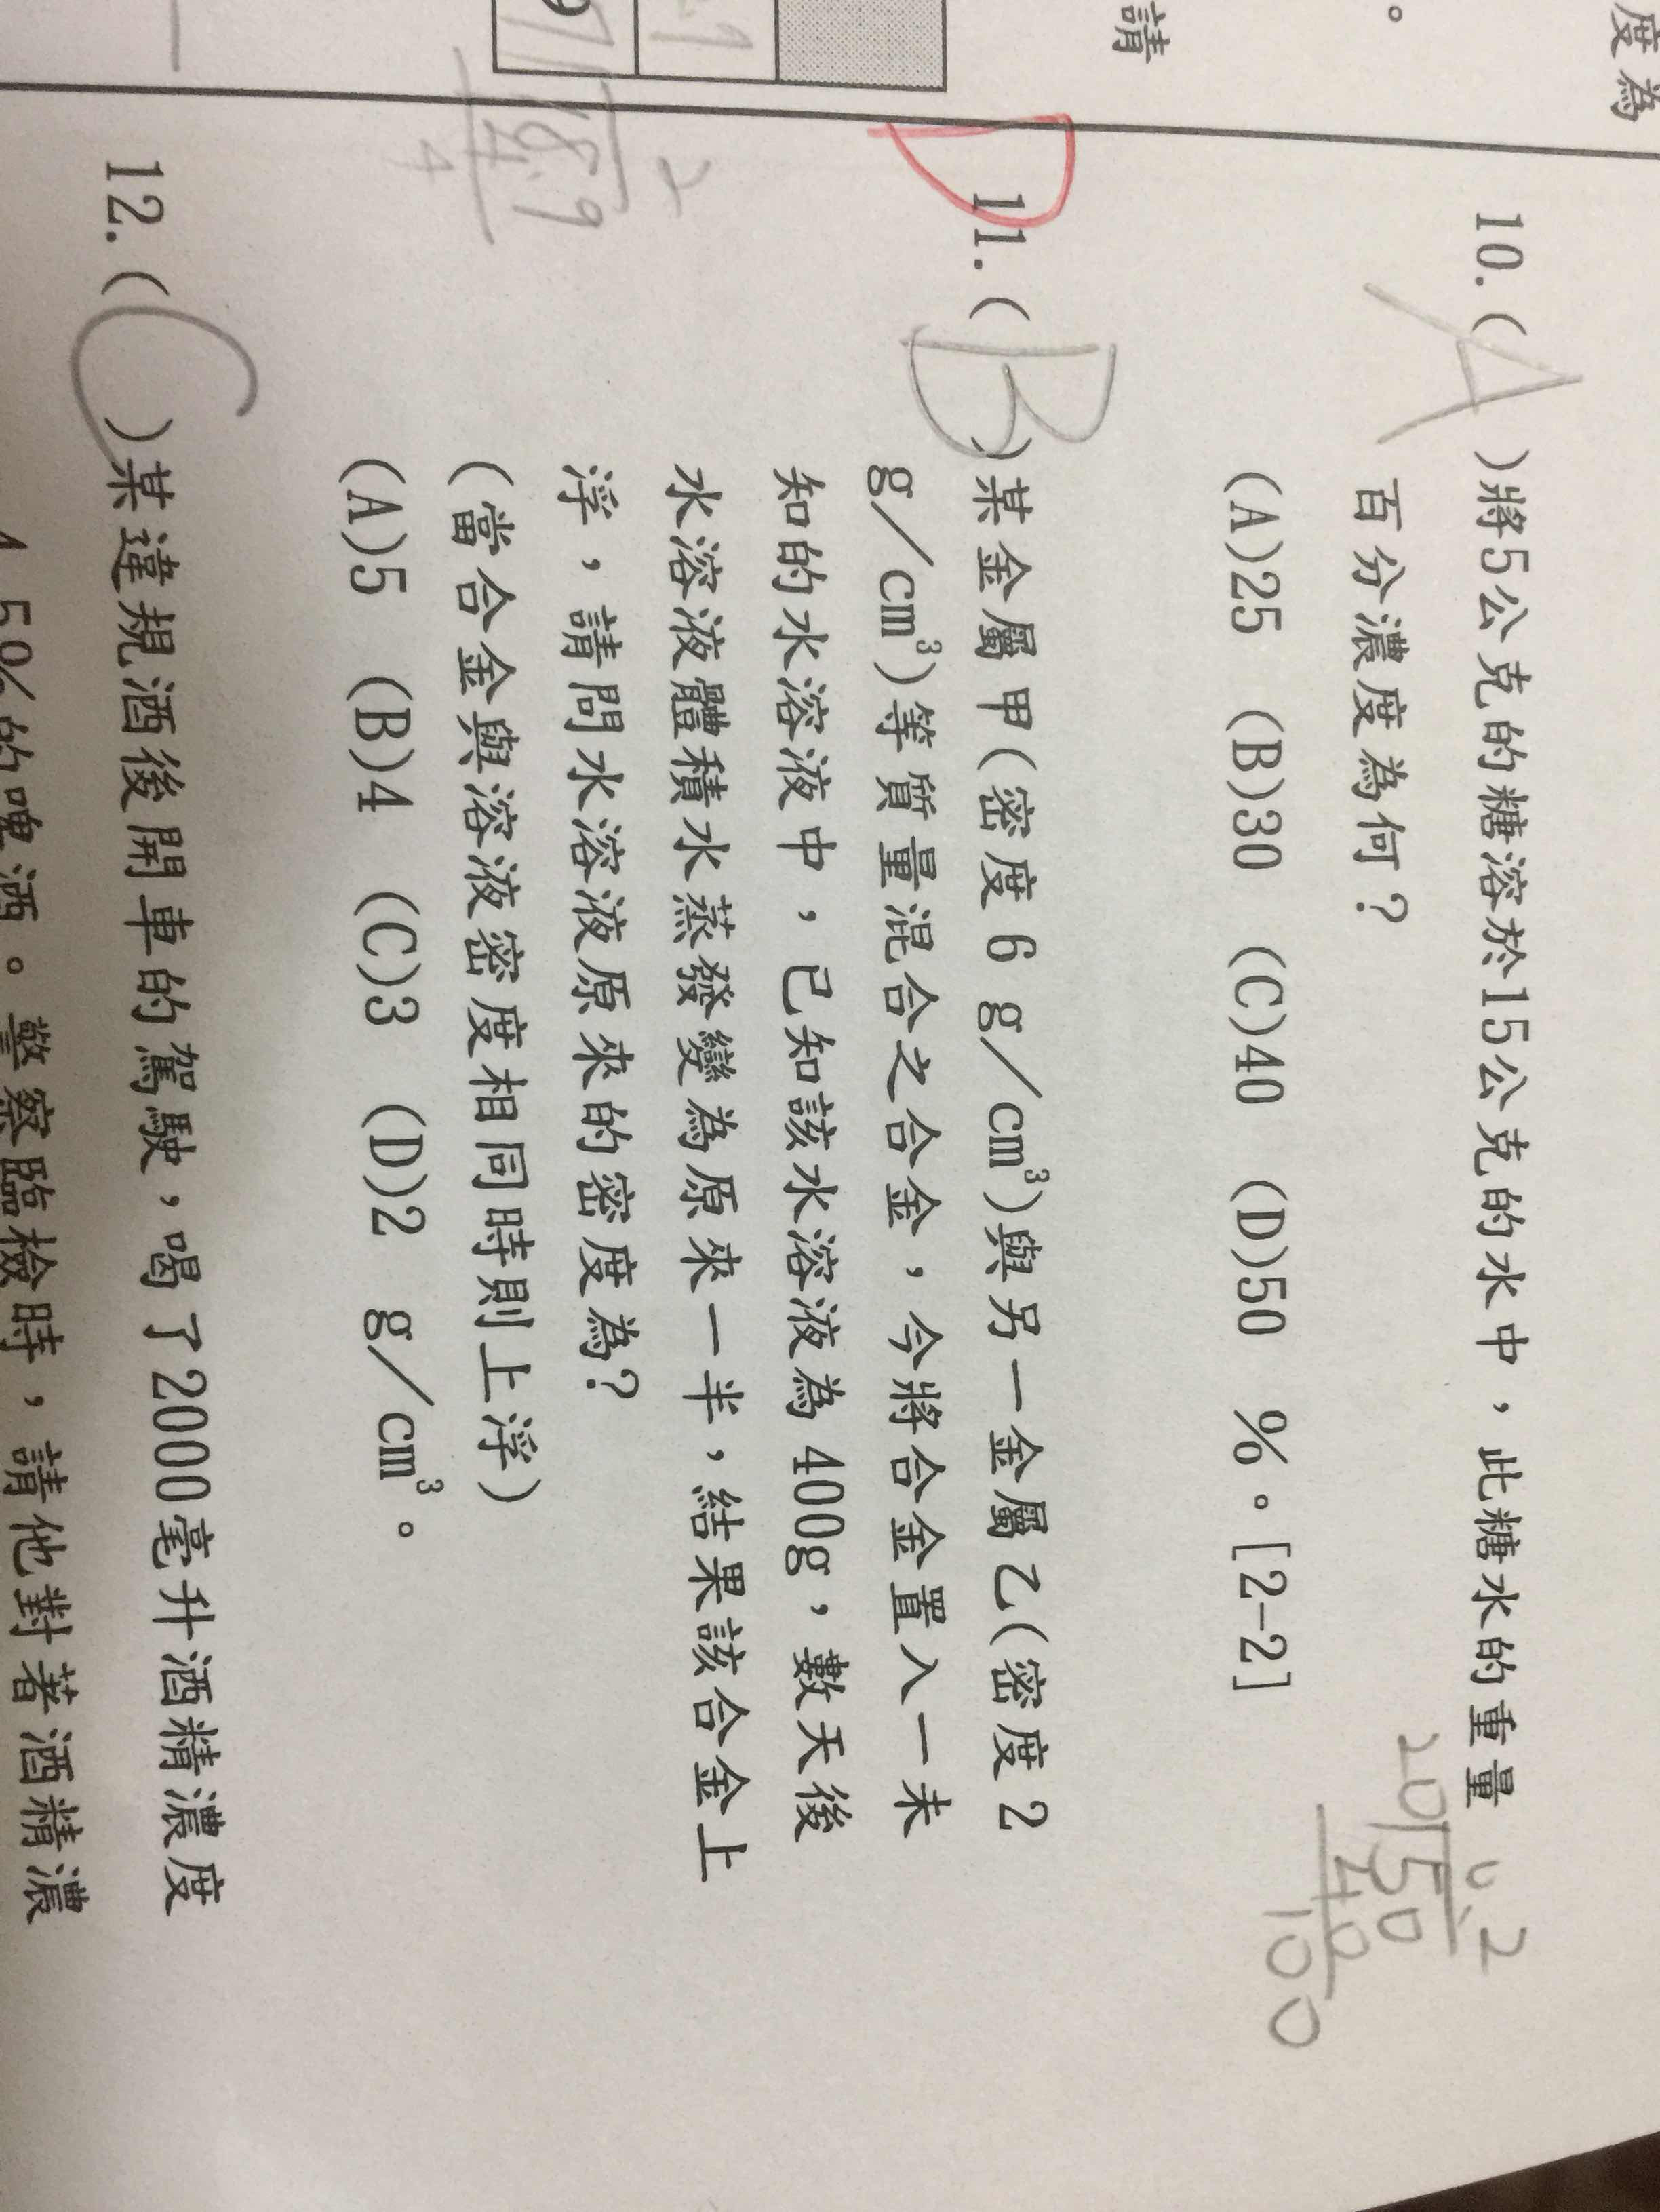 度為
。
請
10.( A )將5公克的糖溶於15公克的水中，此糖水的重量
百分濃度為何？
(A)25 (B)30 (C)40 (D)50 %。[2-2]
0.2
20 50
40
100
D
11.( B )某金屬甲(密度6 g/cm³)與另一金屬乙(密度2
g/cm³)等質量混合之合金，今將合金置入一未
知的水溶液中，已知該水溶液為400g，數天後
水溶液體積水蒸發變為原來一半，結果該合金上
浮，請問水溶液原來的密度為?
(當合金與溶液密度相同時則上浮)
(A)5 (B)4 (C)3 (D)2 g/cm³。
12.( C )某違規酒後開車的駕駛，喝了2000毫升酒精濃度
4.5%的啤酒。警察臨檢時，請他對著酒精濃